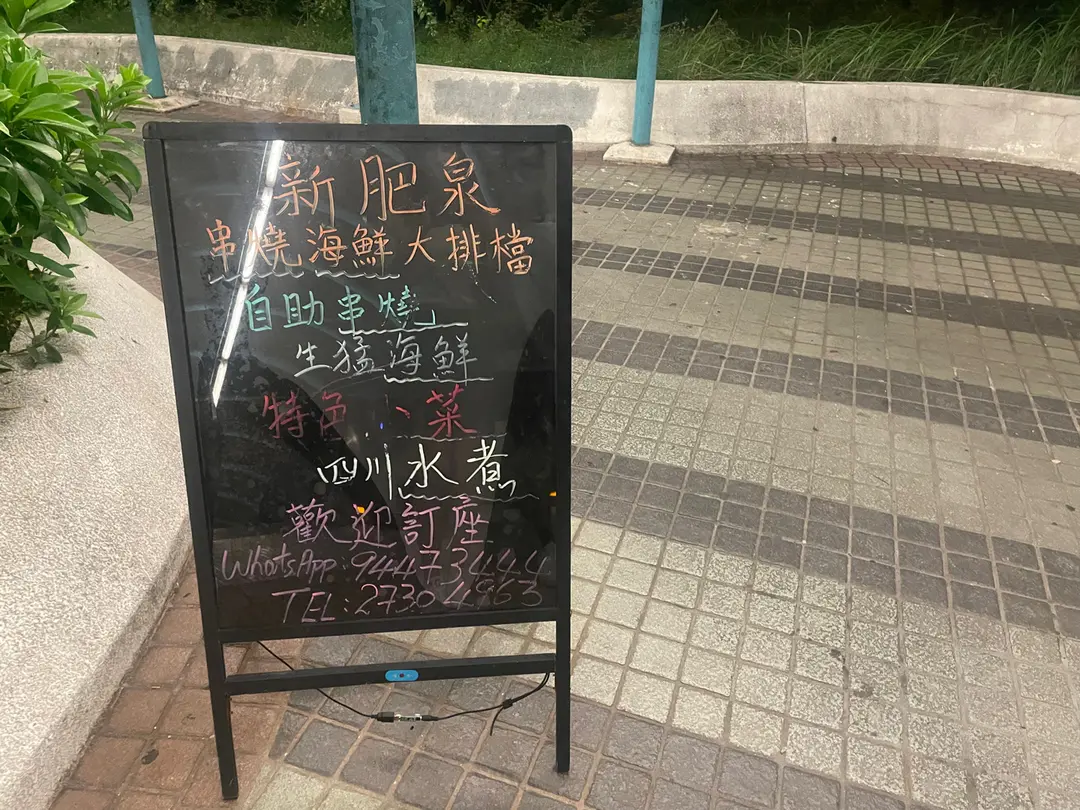 新肥泉
串燒海鮮大排檔
自助串燒
生猛海鮮
特色小菜
四川水煮
歡迎訂座
WhatsApp: 94473444
TEL: 27304963